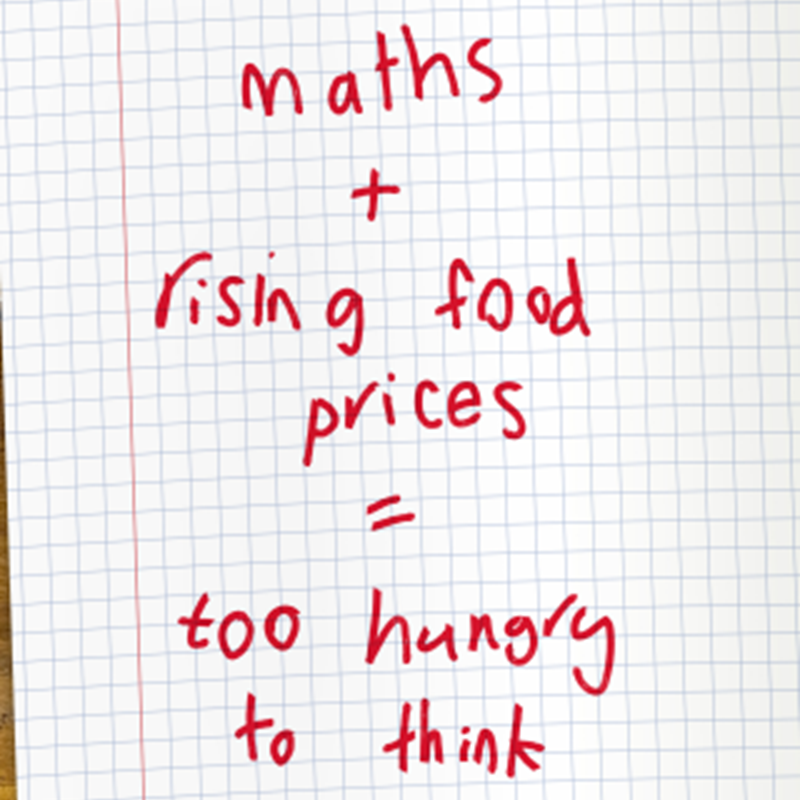 maths
+
rising food
prices
=
too hungry
to think